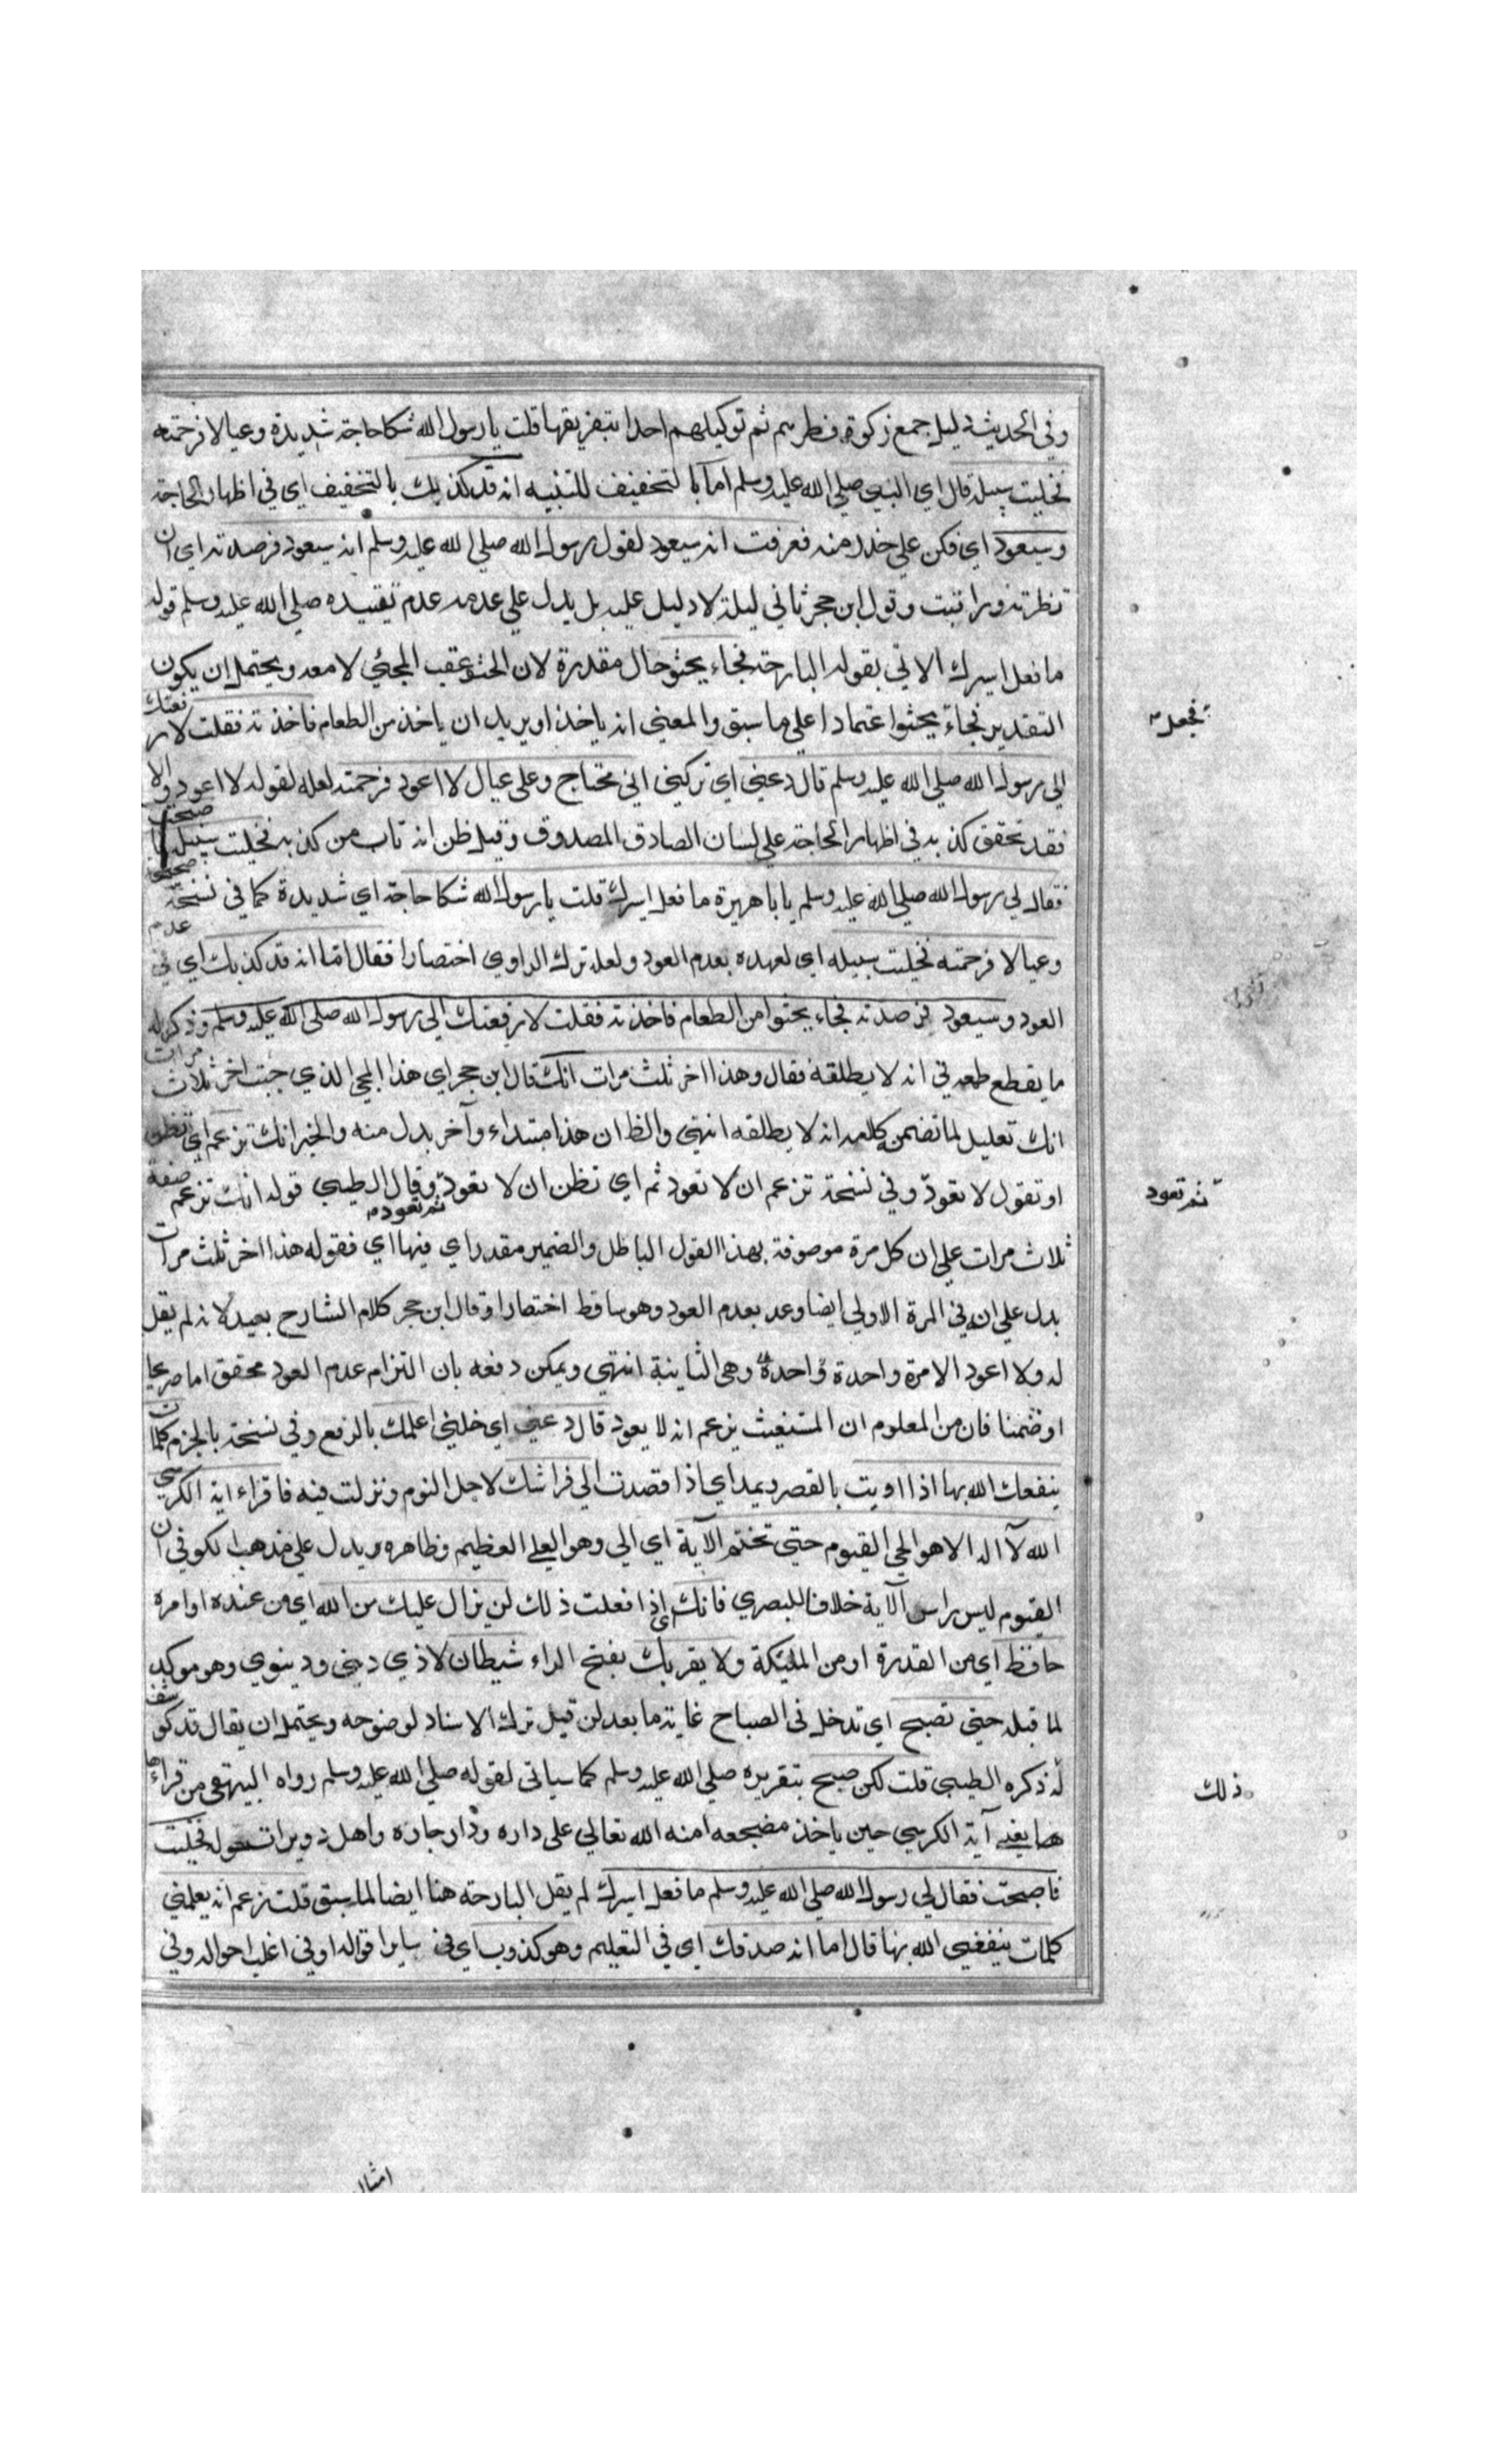 وفي الحديث دليل جمع زكوة فطرهم ثم توكيلهم احدا بتفريقها قلت يا رسول الله شكا حاجة شديدة وعيالا فرحمته
فخليت سبيله قال اي النبي صلي الله عليه وسلم اما بالتخفيف للتنبيه انه قد كذبك بالتخفيف اي في اظهار الحاجة
وسيعود اي فكن علي حذر منه فعرفت انه سيعود لقول رسول الله صلي الله عليه وسلم انه سيعود فرصدته اي ان
تظرته وراقبت وقول ابن حجر ثاني ليلة لا دليل عليه بل يدل علي عدمه عدم تقييده صلي الله عليه وسلم قوله
ما فعل اسيرك الاتي بقوله البارحة فجاء يحثو حال مقدرة لان الحثو عقب المجئي لا معه ويحتمل ان يكون
التقدير فجاء يحثوا اعتمادا علي ما سبق والمعني انه ياخذ او يريد ان ياخذ من الطعام فاخذته فقلت لار فعنك
فجعل
الي رسول الله صلي الله عليه وسلم قال دعني اي تركني اني محتاج وعلي عيال لا اعود فرحمته لعله لقوله لا اعود والا
فقد تحقق كذبه في اظهار الحاجة علي لسان الصادق المصدوق وقيل ظن انه تاب من كذبه فخليت سبيله فاصبحت
فقال لي رسول الله صلي الله عليه وسلم يا با هريرة ما فعل اسيرك قلت يا رسول الله شكا حاجة اي شديدة كما في نسخة
وعيالا فرحمته فخليت سبيله اي لعهده بعدم العود ولعله ترك الراوي اختصارا فقال اما انه قد كذبك اي في عدم
العود وسيعود فرصدته فجاء يحثوا من الطعام فاخذته فقلت لارفعنك الي رسول الله صلي الله عليه وسلم وذكر له
ما يقطع طمعه في انه لا يطلقه فقال وهذا اخر ثلث مرات انك قال ابن حجر اي هذا المجئ الذي جئت اخر ثلاث مرات
انك تعليل لما تضمن كلامه انه لا يطلقه انتهي والظ ان هذا مبتداء وآخر بدل منه والخبر انك تزعم اي تظن
او تقول لا تعود وفي نسخة تزعم ان لا تعود ثم اي تظن ان لا تعود ثم تعود وقال الطيبي قوله انك تزعم صفة
ثم تعود
ثلاث مرات علي ان كل مرة موصوفة بهذا القول الباطل والضمير مقدر اي فيها اي فقوله هذا اخر ثلث مرات
يدل علي ان في المرة الاولي ايضا وعد بعدم العود وهو ساقط اختصارا وقال ابن حجر كلام الشارح بعيد لانه لم يقل
له ولا اعود الا مرة واحدة واحدة وهي الثانية انتهي ويمكن دفعه بان التزام عدم العود محقق اما صريحا
او ضمنا فان من المعلوم ان المستغيث يزعم انه لا يعود قال دعني اي خلني اعلمك بالرفع وفي نسخة بالجزم كلمات
ينفعك الله بها اذا اويت بالقصر ويمد اي اذا قصدت الي فراشك لاجل النوم ونزلت فيه فاقراء اية الكرسي
الله لآ اله الا هو الحي القيوم حتي تختم الآية اي الي وهو العلي العظيم وظاهره يدل علي مذهب الكوفي ان
القيوم ليس براس الآية خلافا للبصري فانك اي اذا فعلت ذلك لن يزال عليك من الله اي من عنده او امره
حافظ اي من القدرة او من المليكة ولا يقربك بفتح الراء شيطان لاذي ديني ودينوي وهو موكد
لما قبله حتي تصبح اي تدخل في الصباح غاية ما بعد لن قيل ترك الاسناد لوضوحه ويحتمل ان يقال قد كوشف
له ذكره الطيبي قلت لكن صح بتقريره صلي الله عليه وسلم كما سياتي لقوله صلي الله عليه وسلم رواه البيهقي من قراءها
ذلك
هها يعني آية الكرسي حين ياخذ مضجعه امنه الله تعالي علي داره ودار جاره واهل دويرات حوله فخليت
فاصبحت فقال لي رسول الله صلي الله عليه وسلم ما فعل اسيرك لم يقل البارحة هنا ايضا لما سبق قلت زعم انه يعلمني
كلمات ينفعني الله بها قال اما انه صدقك اي في التعليم وهو كذوب اي في سايرا قواله او في اغلب احواله وفي
امثال